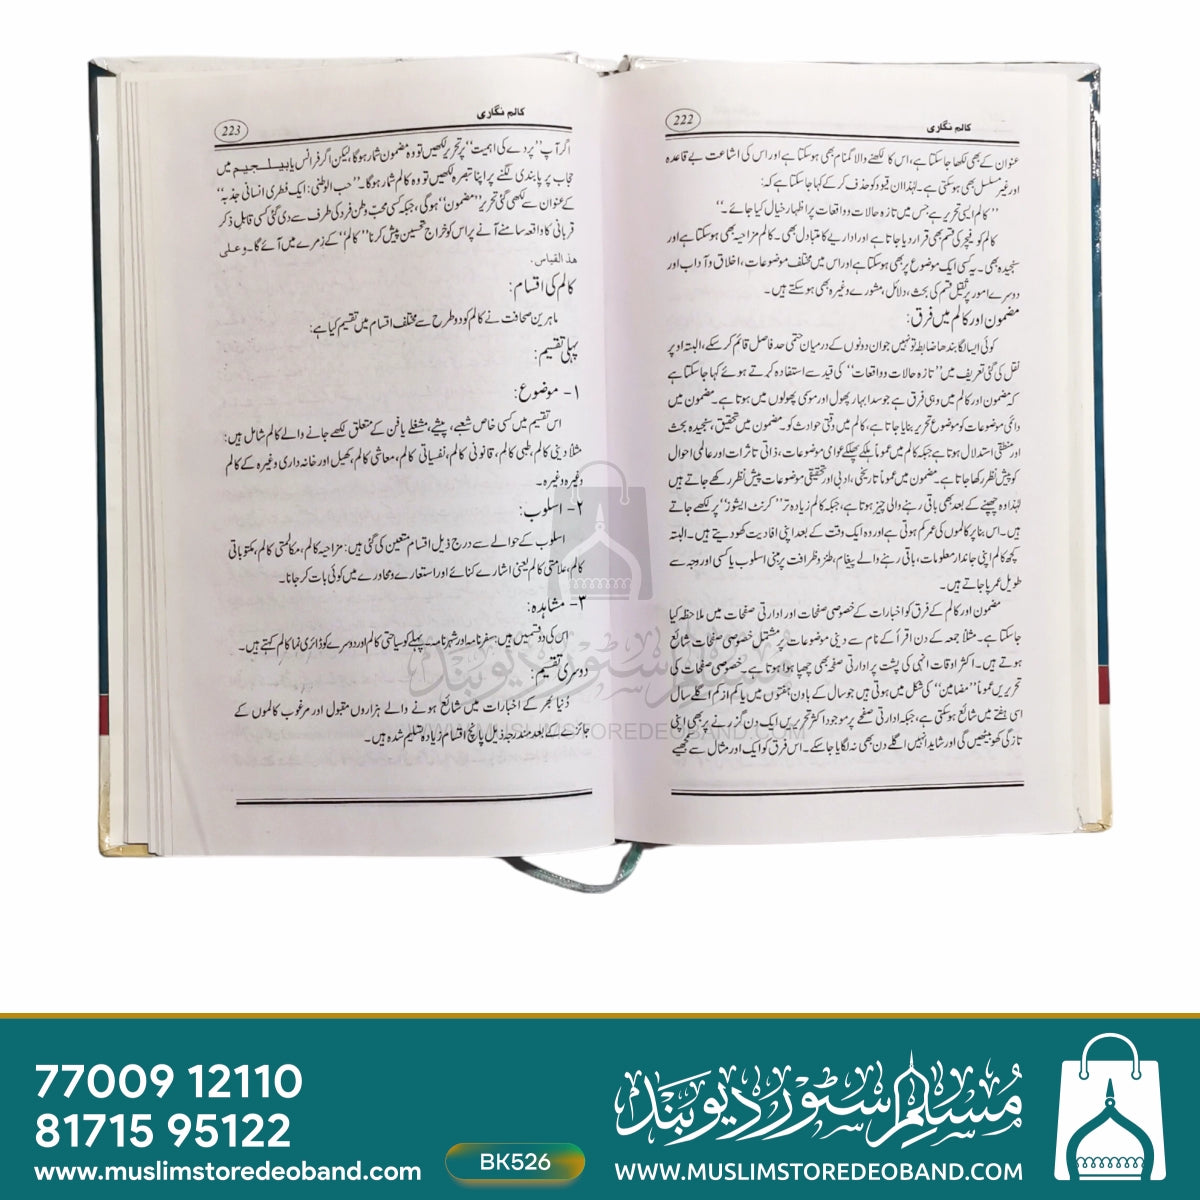 222
کالم نگاری
عنوان کے بھی لکھا جاسکتا ہے، اس کا لکھنے والا گمنام بھی ہوسکتا ہے اور اس کی اشاعت بے قاعدہ
اور غیر مسلسل بھی ہوسکتی ہے۔ لہٰذا ان قیود کو حذف کر کے کہا جاسکتا ہے کہ:
’’کالم ایسی تحریر ہے جس میں تازہ حالات و واقعات پر اظہار خیال کیا جائے۔‘‘
کالم کو فیچر کی قسم بھی قرار دیا جاتا ہے اور اداریے کا متبادل بھی۔ کالم مزاحیہ بھی ہوسکتا ہے اور
سنجیدہ بھی۔ یہ کسی ایک موضوع پر بھی ہوسکتا ہے اور اس میں مختلف موضوعات، اخلاق و آداب اور
دوسرے امور پر ثقیل قسم کی بحث، دلائل، مشورے وغیرہ بھی ہوسکتے ہیں۔
مضمون اور کالم میں فرق:
کوئی ایسا لگا بندھا ضابطہ تو نہیں جو ان دونوں کے درمیان حتمی حد فاصل قائم کرسکے، البتہ اوپر
نقل کی گئی تعریف میں ’’تازہ حالات و واقعات‘‘ کی قید سے استفادہ کرتے ہوئے کہا جاسکتا ہے
کہ مضمون اور کالم میں وہی فرق ہے جو سدا بہار پھول اور موسمی پھولوں میں ہوتا ہے۔ مضمون میں
دائمی موضوعات کو موضوع تحریر بنایا جاتا ہے، کالم میں وقتی حوادث کو۔ مضمون میں تحقیق، سنجیدہ بحث
اور منطقی استدلال ہوتا ہے جبکہ کالم میں عموماً ہلکے پھلکے عوامی موضوعات، ذاتی تاثرات اور عالمی احوال
کو پیش نظر رکھا جاتا ہے۔ مضمون میں عموماً تاریخی، ادبی اور تحقیقی موضوعات پیش نظر رکھے جاتے ہیں
لہٰذا وہ چھپنے کے بعد بھی باقی رہنے والی چیز ہوتا ہے، جبکہ کالم زیادہ تر ’’کرنٹ ایشوز‘‘ پر لکھے جاتے
ہیں۔ اس بنا پر کالموں کی عمر کم ہوتی ہے اور وہ ایک وقت کے بعد اپنی افادیت کھو دیتے ہیں۔ البتہ
کچھ کالم اپنی جاندار معلومات، باقی رہنے والے پیغام، طنز و ظرافت پر مبنی اسلوب یا کسی اور وجہ سے
طویل عمر پا جاتے ہیں۔
مضمون اور کالم کے فرق کو اخبارات کے خصوصی صفحات اور ادارتی صفحات میں ملاحظہ کیا
جاسکتا ہے۔ مثلاً جمعہ کے دن اقرأ کے نام سے دینی موضوعات پر مشتمل خصوصی صفحات شائع
ہوتے ہیں۔ اکثر اوقات انہی کی پشت پر ادارتی صفحہ بھی چھپا ہوا ہوتا ہے۔ خصوصی صفحات کی
تحریریں عموماً ’’مضامین‘‘ کی شکل میں ہوتی ہیں جو سال کے باون ہفتوں میں یا کم از کم اگلے سال
اسی ہفتے میں شائع ہوسکتی ہے، جبکہ ادارتی صفحے پر موجود اکثر تحریریں ایک دن گزرنے پر بھی اپنی
تازگی کھو بیٹھیں گی اور شاید انہیں اگلے دن بھی نہ لگایا جاسکے۔ اس فرق کو ایک اور مثال سے سمجھیے
کالم نگاری
223
اگر آپ ’’پردے کی اہمیت‘‘ پر تحریر لکھیں تو وہ مضمون شمار ہوگا، لیکن اگر فرانس یا بیلجیم میں
حجاب پر پابندی لگنے پر اپنا تبصرہ لکھیں تو وہ کالم شمار ہوگا۔ ’’حب الوطنی: ایک فطری انسانی جذبہ‘‘
کے عنوان سے لکھی گئی تحریر ’’مضمون‘‘ ہوگی، جبکہ کسی محبّ وطن فرد کی طرف سے دی گئی کسی قابلِ ذکر
قربانی کا واقعہ سامنے آنے پر اس کو خراج تحسین پیش کرنا ’’کالم‘‘ کے زمرے میں آئے گا۔ وعلی
هذ القیاس.
کالم کی اقسام:
ماہرین صحافت نے کالم کو دو طرح سے مختلف اقسام میں تقسیم کیا ہے:
پہلی تقسیم:
۱- موضوع:
اس تقسیم میں کسی خاص شعبے، پیشے، مشغلے یا فن کے متعلق لکھے جانے والے کالم شامل ہیں:
مثلاً دینی کالم، طبی کالم، قانونی کالم، نفسیاتی کالم، معاشی کالم، کھیل اور خانہ داری وغیرہ کے کالم
وغیرہ وغیرہ۔
۲- اسلوب:
اسلوب کے حوالے سے درج ذیل اقسام متعین کی گئی ہیں: مزاحیہ کالم، مکالمتی کالم، مکتوباتی
کالم، علامتی کالم یعنی اشارے کنائے اور استعارے و محاورے میں کوئی بات کر جانا۔
۳- مشاہدہ:
اس کی دو قسمیں ہیں: سفرنامہ اور شہرنامہ۔ پہلے کو سیاحتی کالم اور دوسرے کو ڈائری نما کالم کہتے ہیں۔
دوسری تقسیم:
دُنیا بھر کے اخبارات میں شائع ہونے والے ہزاروں مقبول اور مرغوب کالموں کے
جائزے کے بعد مندرجہ ذیل پانچ اقسام زیادہ تسلیم شدہ ہیں۔
مسلم سٹور دیوبند
WWW.MUSLIMSTOREDEOBAND.COM
77009 12110
81715 95122
www.muslimstoredeoband.com
BK526
مسلم سٹور دیوبند
WWW.MUSLIMSTOREDEOBAND.COM